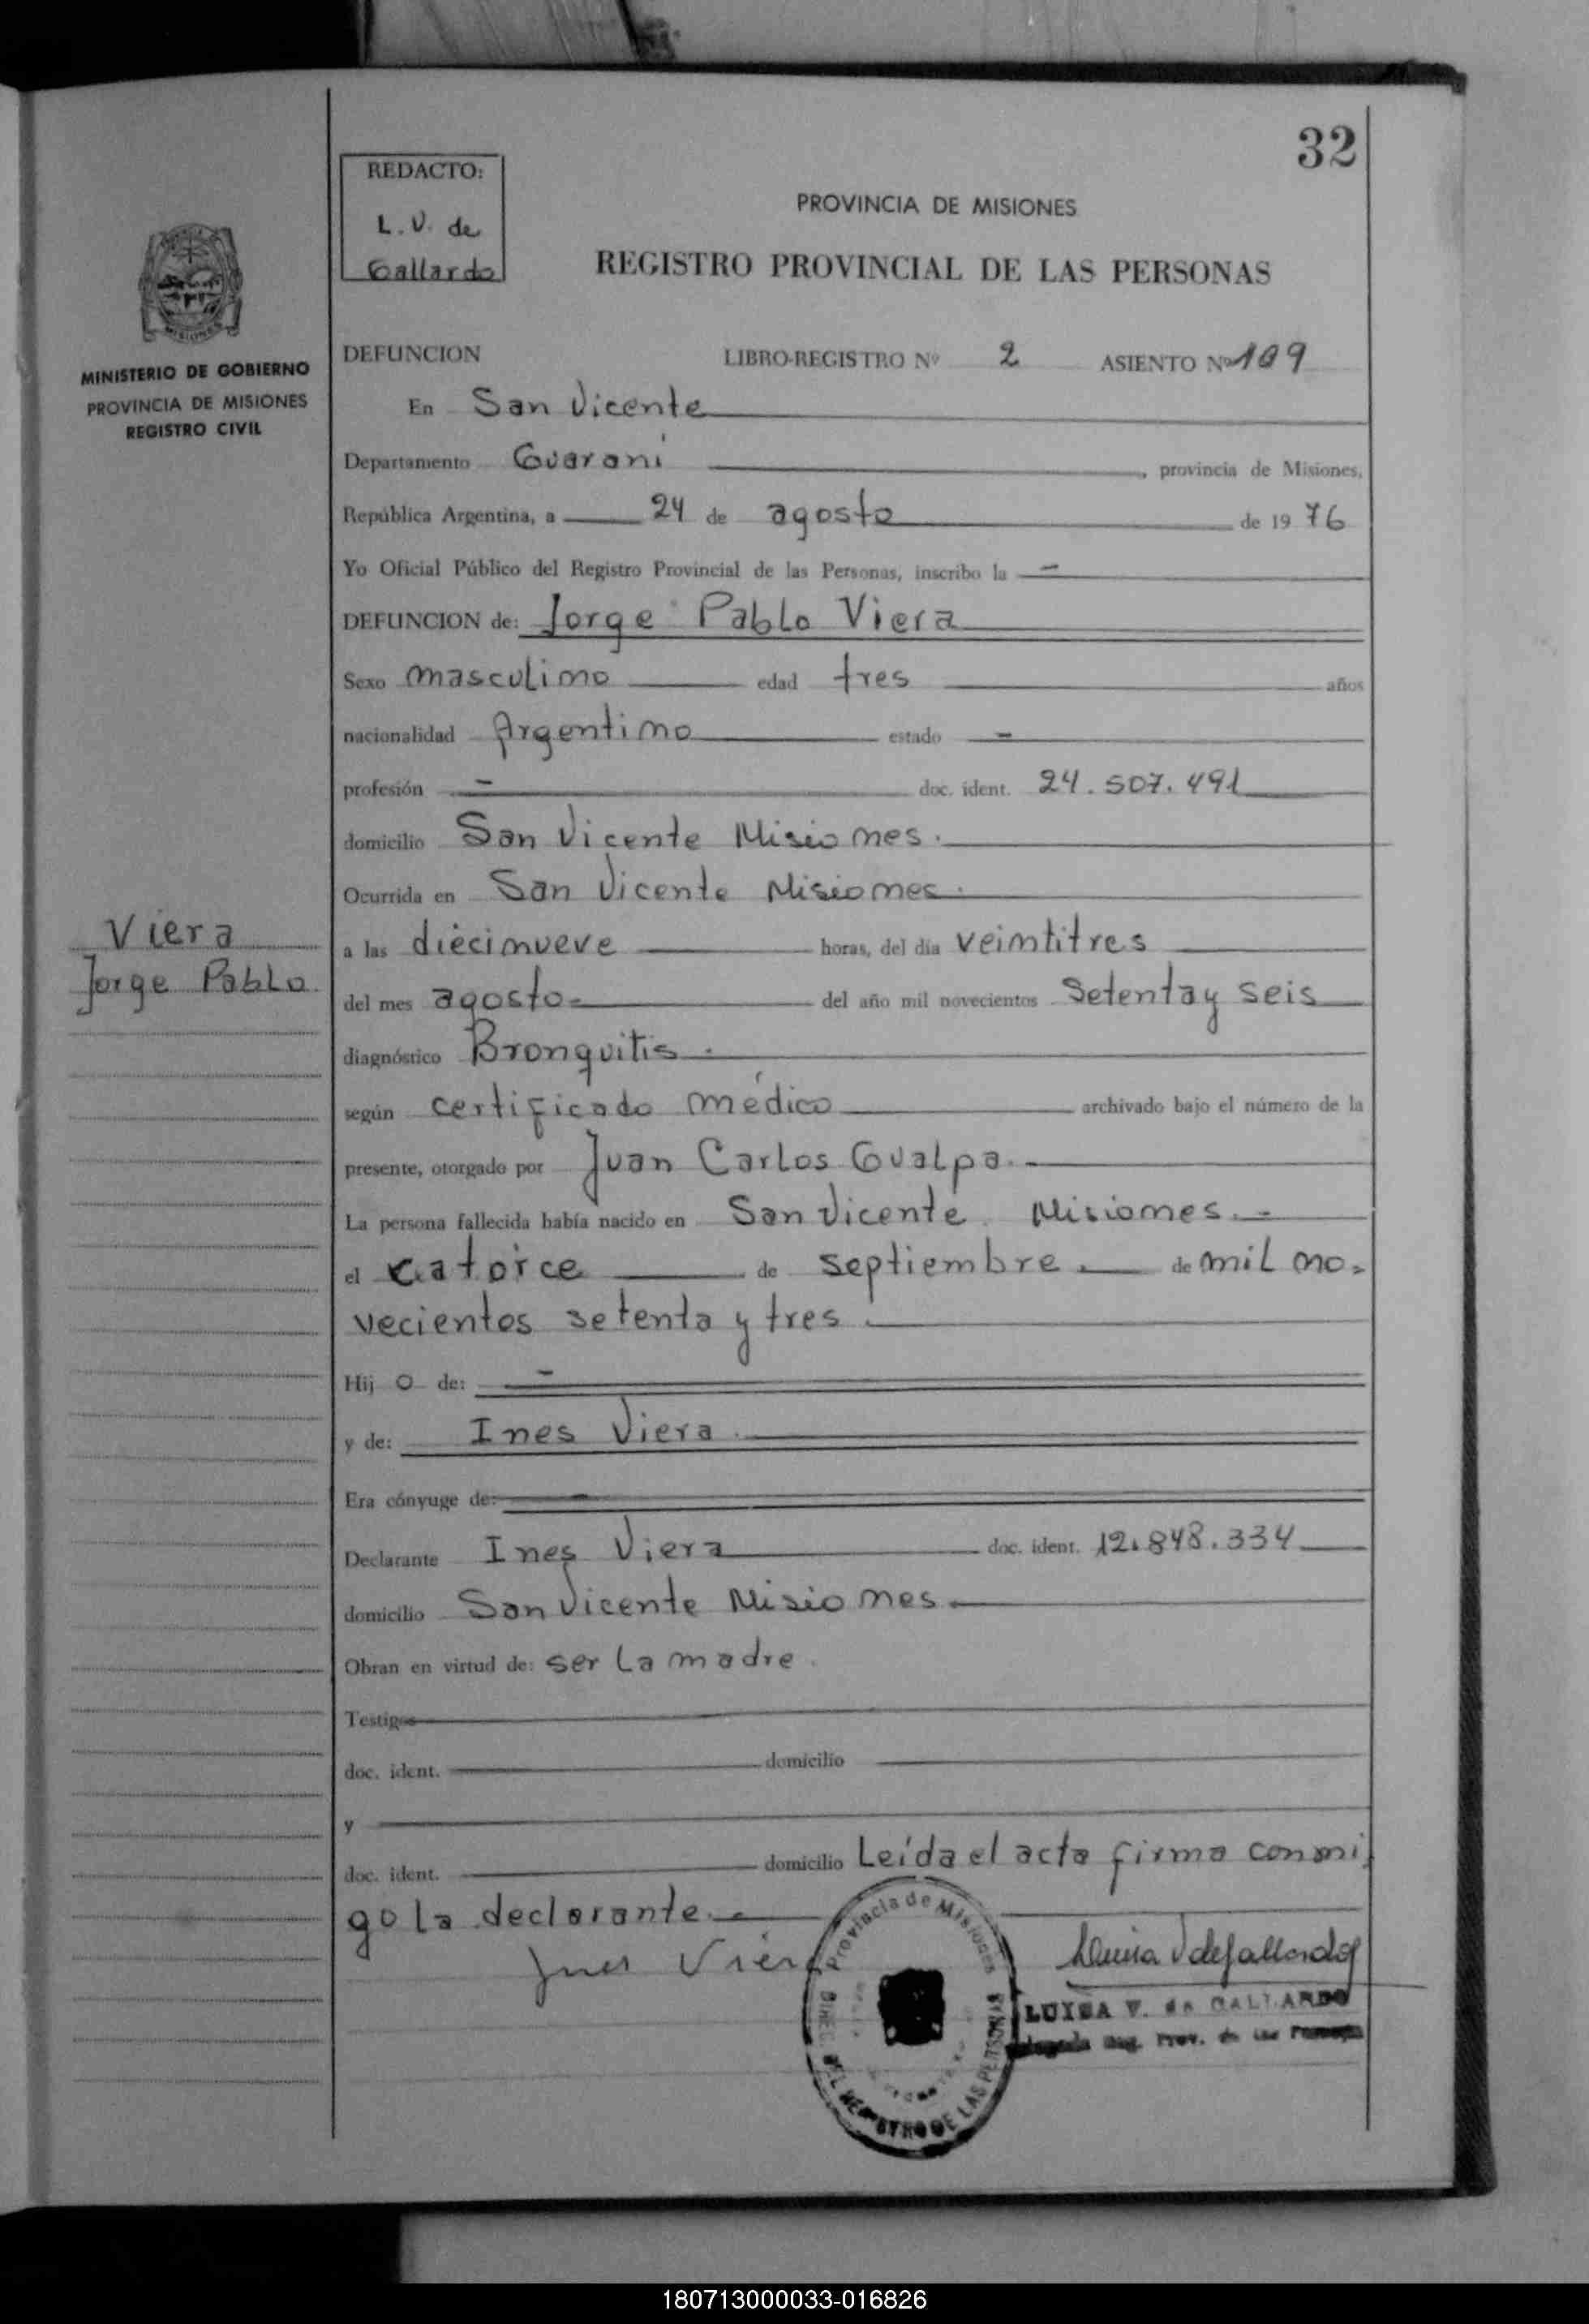 32
REDACTO:
L. V. de
Gallardo
PROVINCIA DE MISIONES
REGISTRO PROVINCIAL DE LAS PERSONAS
MISIONES
MINISTERIO DE GOBIERNO
PROVINCIA DE MISIONES
REGISTRO CIVIL
DEFUNCION LIBRO-REGISTRO Nº 2 ASIENTO Nº 109
En San Vicente
Departamento Guarani, provincia de Misiones,
República Argentina, a 24 de agosto de 19 76
Yo Oficial Público del Registro Provincial de las Personas, inscribo la -
DEFUNCION de: Jorge Pablo Viera
Sexo masculino edad tres años
nacionalidad Argentino estado -
profesión - doc. ident. 24.507.491
domicilio San Vicente Misiones.
Ocurrida en San Vicente Misiones.
Viera
Jorge Pablo.
a las diecinueve horas, del día veintitres
del mes agosto del año mil novecientos setenta y seis
diagnóstico Bronquitis.
según certificado médico archivado bajo el número de la
presente, otorgado por Juan Carlos Gualpa.
La persona fallecida había nacido en San Vicente Misiones.-
el catorce de septiembre de mil no-
vecientos setenta y tres.
Hij o de: -
y de: Ines Viera.
Era cónyuge de: -
Declarante Ines Viera doc. ident. 12.848.334
domicilio San Vicente Misiones.
Obran en virtud de: ser la madre.
Testigos
doc. ident. domicilio
y
doc. ident. domicilio Leída el acta firma conmi-
go la declarante.-
Ines Viera
Luisa V de Gallardo
LUISA V. de GALLARDO
Reg. Prov. de las Personas
Provincia de Misiones
DIREC. DEL REGISTRO DE LAS PERSONAS
180713000033-016826